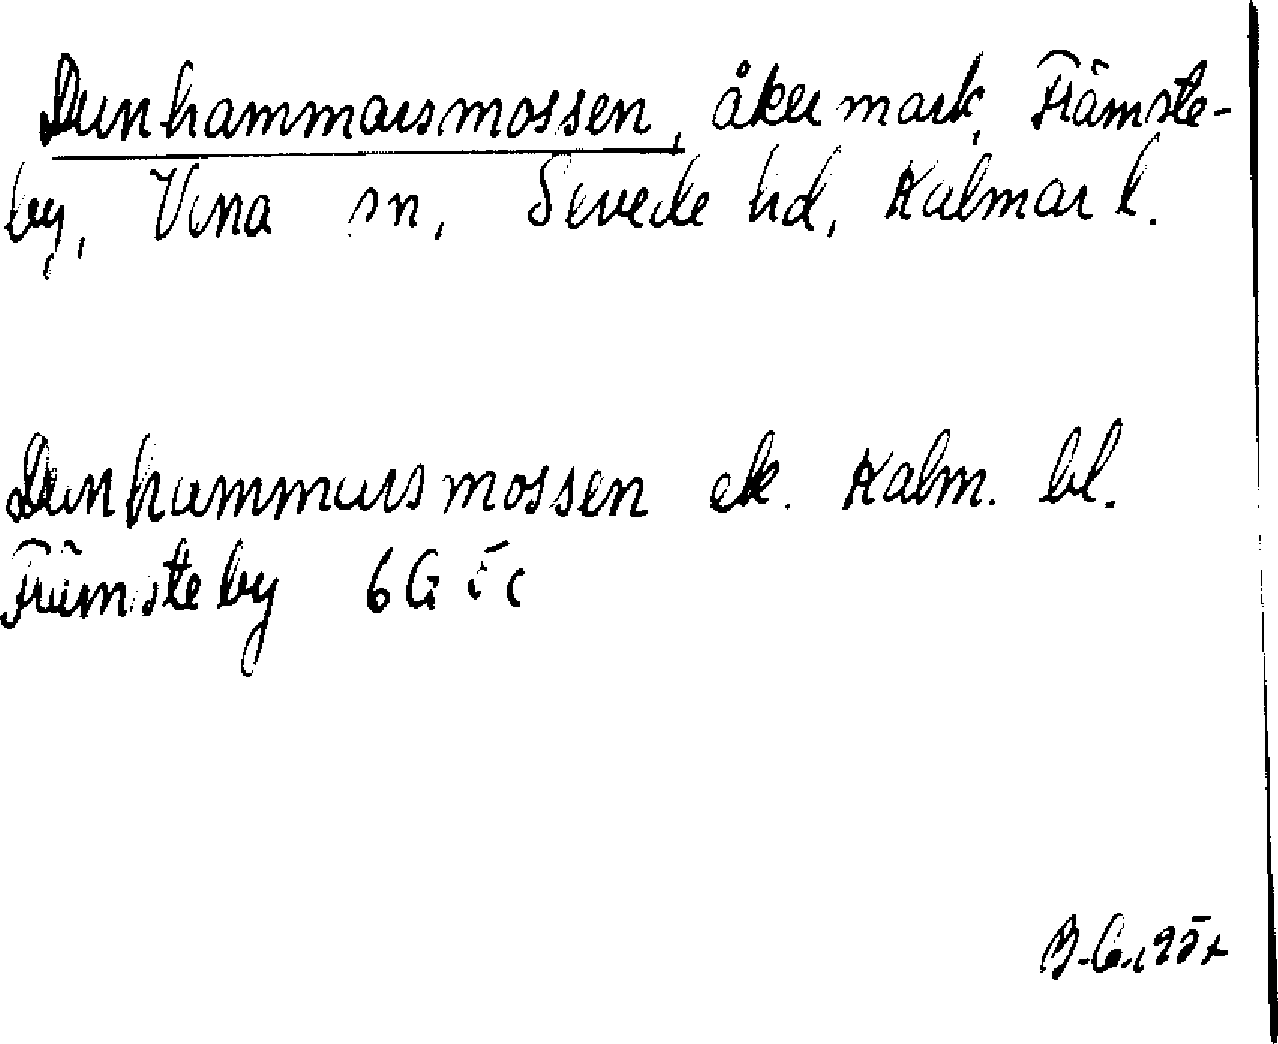 Dunhammarsmossen, åkermark, Främste-
by, Vena sn, Sevede hd, Kalmar l.
Dunhammarsmossen ek. Kalm. bl.
Främsteby 6G 5c